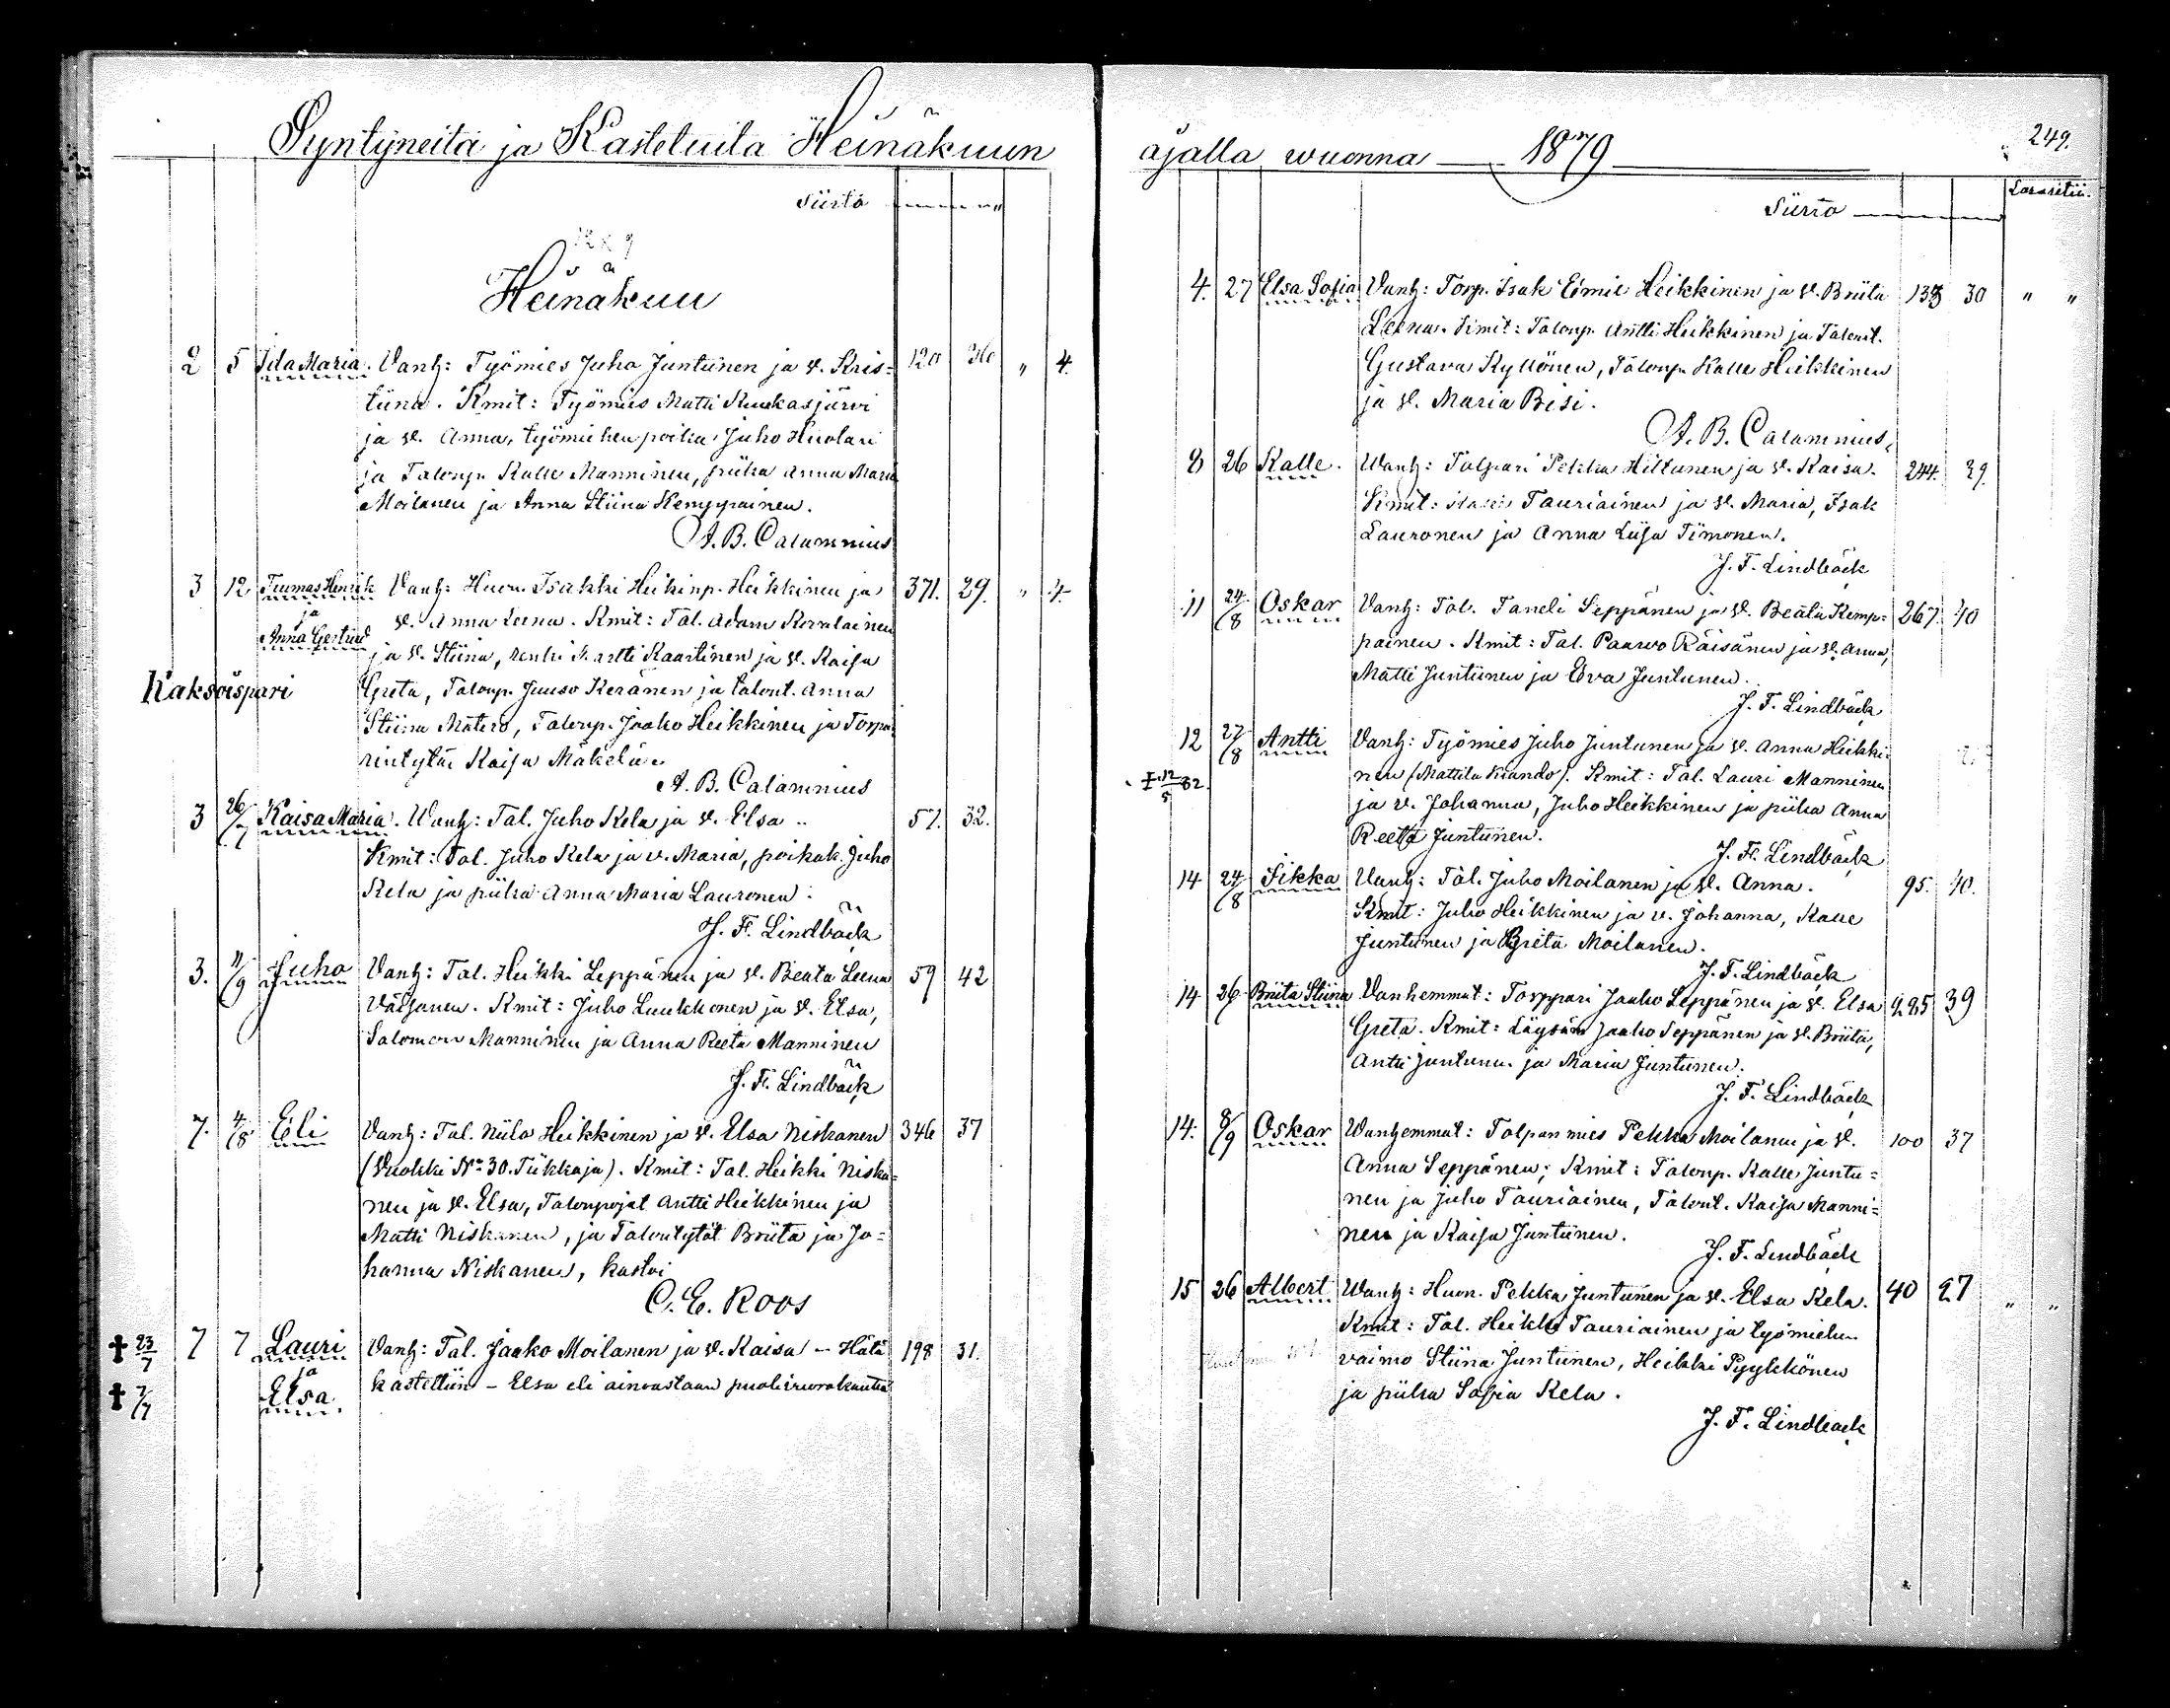 Syntyneitä ja Kastetuita Heinäkuun
Siirto
Heinäkuu
2 5 Ida Maria. Vanh: Työmies Juho Juntunen ja v. Kris= 120 " 4.
tiina. Kmit: Työmies Matti Kuukasjärvi
ja v. Anna, työmiehen poika Juho Huolari
ja Talonp. Kalle Manninen, piika Anna Maria
Moilanen ja Anna Stiina Kemppainen.
A. B. Calamnius
3 12 Tuomas Henrik Vanh: Huon. Isakki Heikinp. Heikkinen ja 371. 29. " 4.
ja v. Anna Leena. Kmit: Tal. Adam Kovalainen
Anna Gertrud ja v. Stiina, renki Martti Kaartinen ja v. Kaisa
Kaksoispari Greta, Talonp. Juuso Keränen ja talont. Anna
Stiina Matero, Talonp. Jaako Heikkinen ja Torpa
rintytär Kaisa Mäkelä.
A. B. Calamnius
3 26/7 Kaisa Maria. Wanh: Tal. Juho Kela ja v. Elsa. 57. 32.
Kmit: Tal. Juho Kela ja v. Maria, poikak. Juho
Kela ja piika Anna Maria Lauronen.
J. F. Lindbäck
3. 11/9 Juho Vanh: Tal. Heikki Leppänen ja v. Beata Leena 59 42
Väljanen. Kmit: Juho Luukkonen ja v. Elsa,
Salomon Manninen ja Anna Reeta Manninen
J. F. Lindbäck
7. 4/8 Eli Vanh: Tal. Niilo Heikkinen ja v. Elsa Niskanen 346 37
(Vuokki No 30. Tiikkaja). Kmit: Tal. Heikki Niska=
nen ja v. Elsa, Talonpojat Antti Heikkinen ja
Matti Niskanen, ja Talontytöt Briita ja Jo=
hanna Niskanen, kastoi
C. E. Roos
† 23/7 7 7 Lauri Vanh: Tal. Jaako Moilanen ja v. Kaisa – Hätä 198 31.
ja
† 7/7 Elsa. kastettiin – Elsa eli ainoastaan puolivuorokautta
ajalla wuonna 1879
249.
Siirto
4. 27 Elsa Sofia Vanh: Torp. Isak Eemil Heikkinen ja v. Briita 138 30 " "
Leena. Kmit: Talonp. Antti Heikkinen ja Talont.
Gustava Kyllönen, Talonp. Kalle Heikkinen
ja v. Maria Bisi.
A. B. Calamnius
8 26 Kalle. Wanh: Talpari Pekka Hiltunen ja v. Kaisa. 244. 39.
Kmit: Tauriainen ja v. Maria, Isak
Lauronen ja Anna Liisa Timonen.
J. F. Lindbäck
11 24/8 Oskar Vanh: Tal. Taneli Seppänen ja v. Beata Kemp= 267 40
painen. Kmit: Tal. Paavo Räisänen ja v. Anna,
Matti Juntunen ja Eeva Juntunen.
J. F. Lindbäck
12 27/8 Antti Vanh: Työmies Juho Juntunen ja v. Anna Heikki-
† 12/5 82. nen (Mattila Kiando). Kmit: Tal. Lauri Manninen
ja v. Johanna, Juho Heikkinen ja piika Anna
Reeta Juntunen.
J. F. Lindbäck
14 24/8 Sikka Vanh: Tal. Juho Moilanen ja v. Anna. 95. 40.
Kmit: Juho Heikkinen ja v. Johanna, Kalle
Juntunen ja Greta Moilanen.
J. F. Lindbäck
14 26 Briita Stiina Vanhemmat: Torppari Jaako Seppänen ja v. Elsa 225 39
Greta. Kmit: Jaako Seppänen ja v. Briita,
Antti Juntunen ja Maria Juntunen.
J. F. Lindbäck
14. 8/9 Oskar Wanhemmat: Talpanmies Pekka Moilanen ja v. 100 37
Anna Seppänen; Kmit: Talonp. Kalle Juntu=
nen ja Juho Tauriainen, Talont. Kaisa Manni=
nen ja Kaisa Juntunen.
J. F. Lindbäck
15 26 Albert Wanh: Huon. Pekka Juntunen ja v. Elsa Kela. 40 27 " "
Kmit: Tal. Heikki Tauriainen ja työmiehen
vaimo Stiina Juntunen, Heikki Pyykkönen
ja piika Sofia Kela.
J. F. Lindbäck